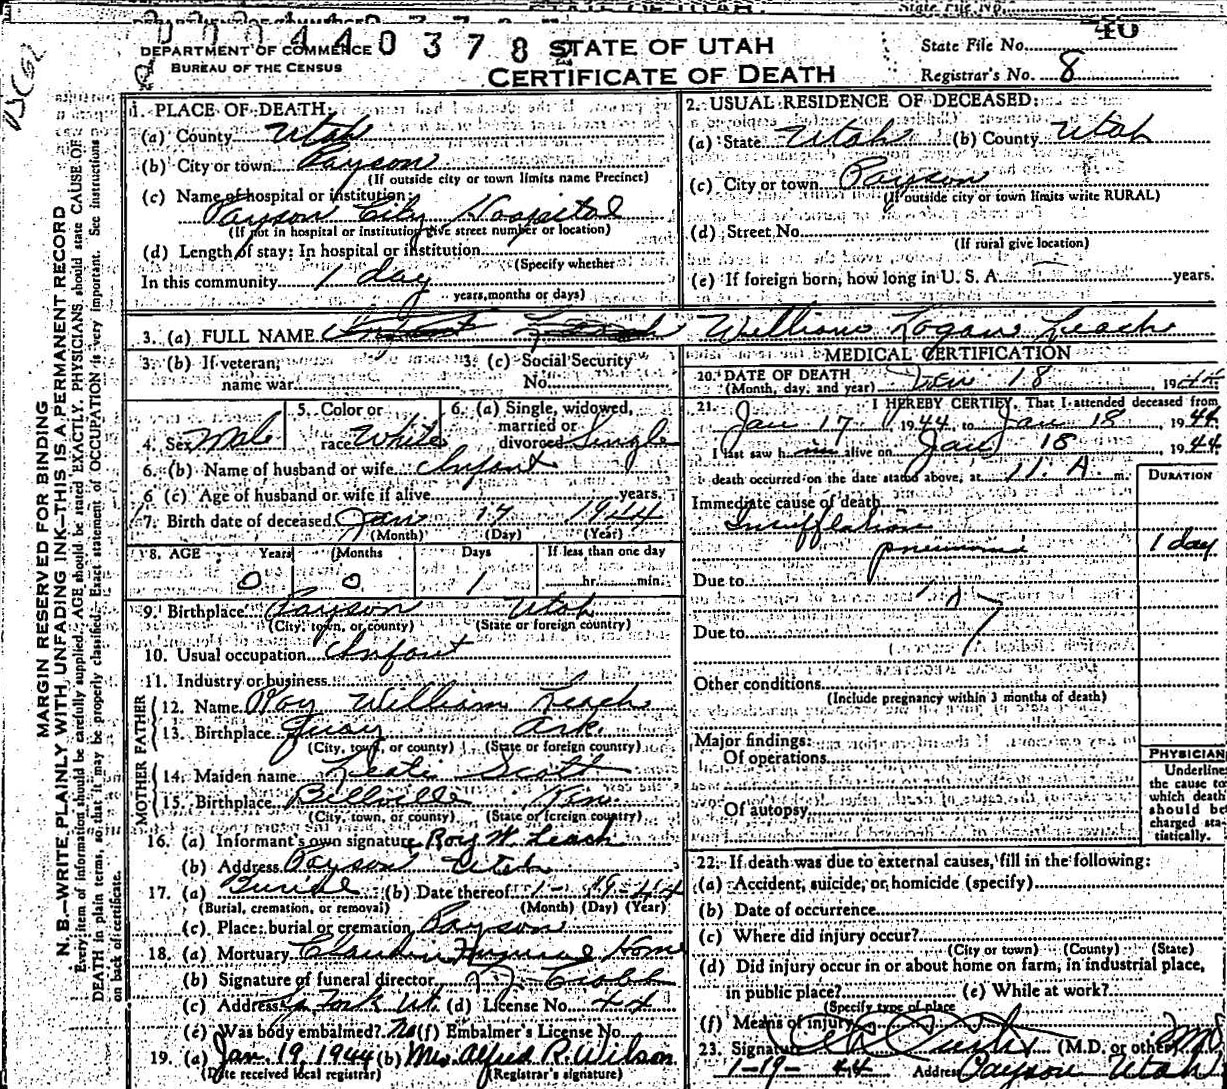 40
DEPARTMENT OF COMMERCE
BUREAU OF THE CENSUS
0 0 0 4 4 0 3 7 8
STATE OF UTAH
CERTIFICATE OF DEATH
State File No.
Registrar's No. 8
MARGIN RESERVED FOR BINDING
N. B.—WRITE PLAINLY WITH UNFADING INK—THIS IS A PERMANENT RECORD
Every item of information should be carefully supplied. AGE should be stated EXACTLY. PHYSICIANS should state CAUSE OF
DEATH in plain terms, so that it may be properly classified. Exact statement of OCCUPATION is very important. See instructions
on back of certificate.
1. PLACE OF DEATH:
(a) County Utah
(b) City or town Payson
(If outside city or town limits name Precinct)
(c) Name of hospital or institution:
Payson City Hospital
(If not in hospital or institution give street number or location)
(d) Length of stay: In hospital or institution
(Specify whether
In this community 1 day
years, months or days)
2. USUAL RESIDENCE OF DECEASED:
(a) State Utah (b) County Utah
(c) City or town Payson
(If outside city or town limits write RURAL)
(d) Street No.
(If rural give location)
(e) If foreign born, how long in U. S. A. years.
3. (a) FULL NAME Infant Leach William Logan Leach
3. (b) If veteran, name war
3. (c) Social Security No.
4. Sex Male
5. Color or race White
6. (a) Single, widowed, married or divorced Single
6. (b) Name of husband or wife Infant
6 (c) Age of husband or wife if alive years.
7. Birth date of deceased Jan 17 1944
(Month) (Day) (Year)
8. AGE Years Months Days If less than one day
0 0 1 hr. min.
9. Birthplace Payson Utah
(City, town, or county) (State or foreign country)
10. Usual occupation Infant
11. Industry or business
FATHER
12. Name Roy William Leach
13. Birthplace Ark.
(City, town, or county) (State or foreign country)
MOTHER
14. Maiden name Scott
15. Birthplace
(City, town, or county) (State or foreign country)
16. (a) Informant's own signature Roy W. Leach
(b) Address Payson Utah
17. (a) Burial (b) Date thereof 1-19-44
(Burial, cremation, or removal) (Month) (Day) (Year)
(c) Place: burial or cremation Payson
18. (a) Mortuary Claudin Funeral Home
(b) Signature of funeral director
(c) Address Sp Fork Ut. (d) License No. 44
(e) Was body embalmed? No (f) Embalmer's License No.
19. (a) Jan. 19, 1944 (b) Mrs Alfred R. Wilson
(Date received local registrar) (Registrar's signature)
MEDICAL CERTIFICATION
20. DATE OF DEATH
(Month, day, and year) Jan 18, 1944
21. I HEREBY CERTIFY, That I attended deceased from
Jan 17, 1944 to Jan 18, 1944.
I last saw h im alive on Jan 18, 1944.
death occurred on the date stated above, at 11. A. m.
DURATION
Immediate cause of death
Insufflation
pneumonia 1 day
Due to
Due to
Other conditions
(Include pregnancy within 3 months of death)
Major findings:
Of operations
Of autopsy
PHYSICIAN
Underline
the cause to
which death
should be
charged sta-
tistically.
22. If death was due to external causes, fill in the following:
(a) Accident, suicide, or homicide (specify)
(b) Date of occurrence
(c) Where did injury occur?
(City or town) (County) (State)
(d) Did injury occur in or about home on farm, in industrial place,
in public place? (e) While at work?
(Specify type of place
(f) Means of injury
23. Signature (M.D. or other) MD
1-19-44 Address Payson Utah